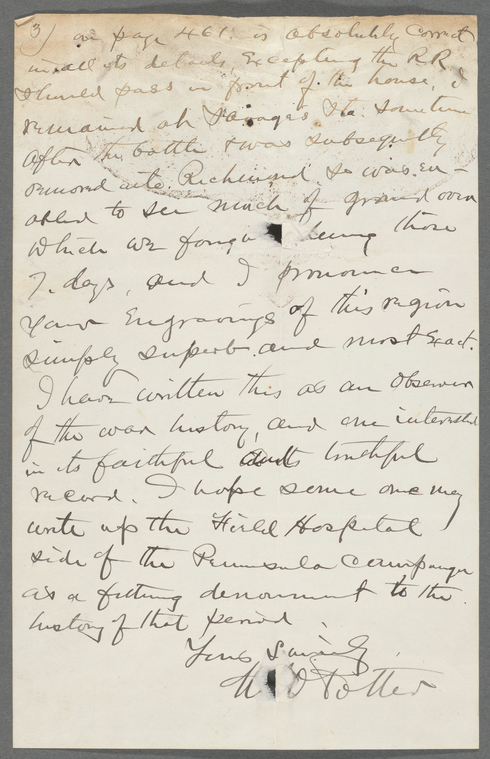 3) on page 461. is absolutely correct
in all its details, excepting the R.R.
should pass in front of the house, I
remained at Savages Sta. sometime
after the battle & was subsequently
removed into Richmond, so was en-
abled to see much of ground over
which we fough during those
7. days, and I pronounce
your Engravings of this region
simply superb and most Exact.
I have written this as an observer
of the war history, and one interested
in its faithful truthful
record. I hope some one may
write up the Field Hospital
side of the Peninsula Campaign
as a fitting denoument to the
history of that period.
Yours Sincerely,
Potter